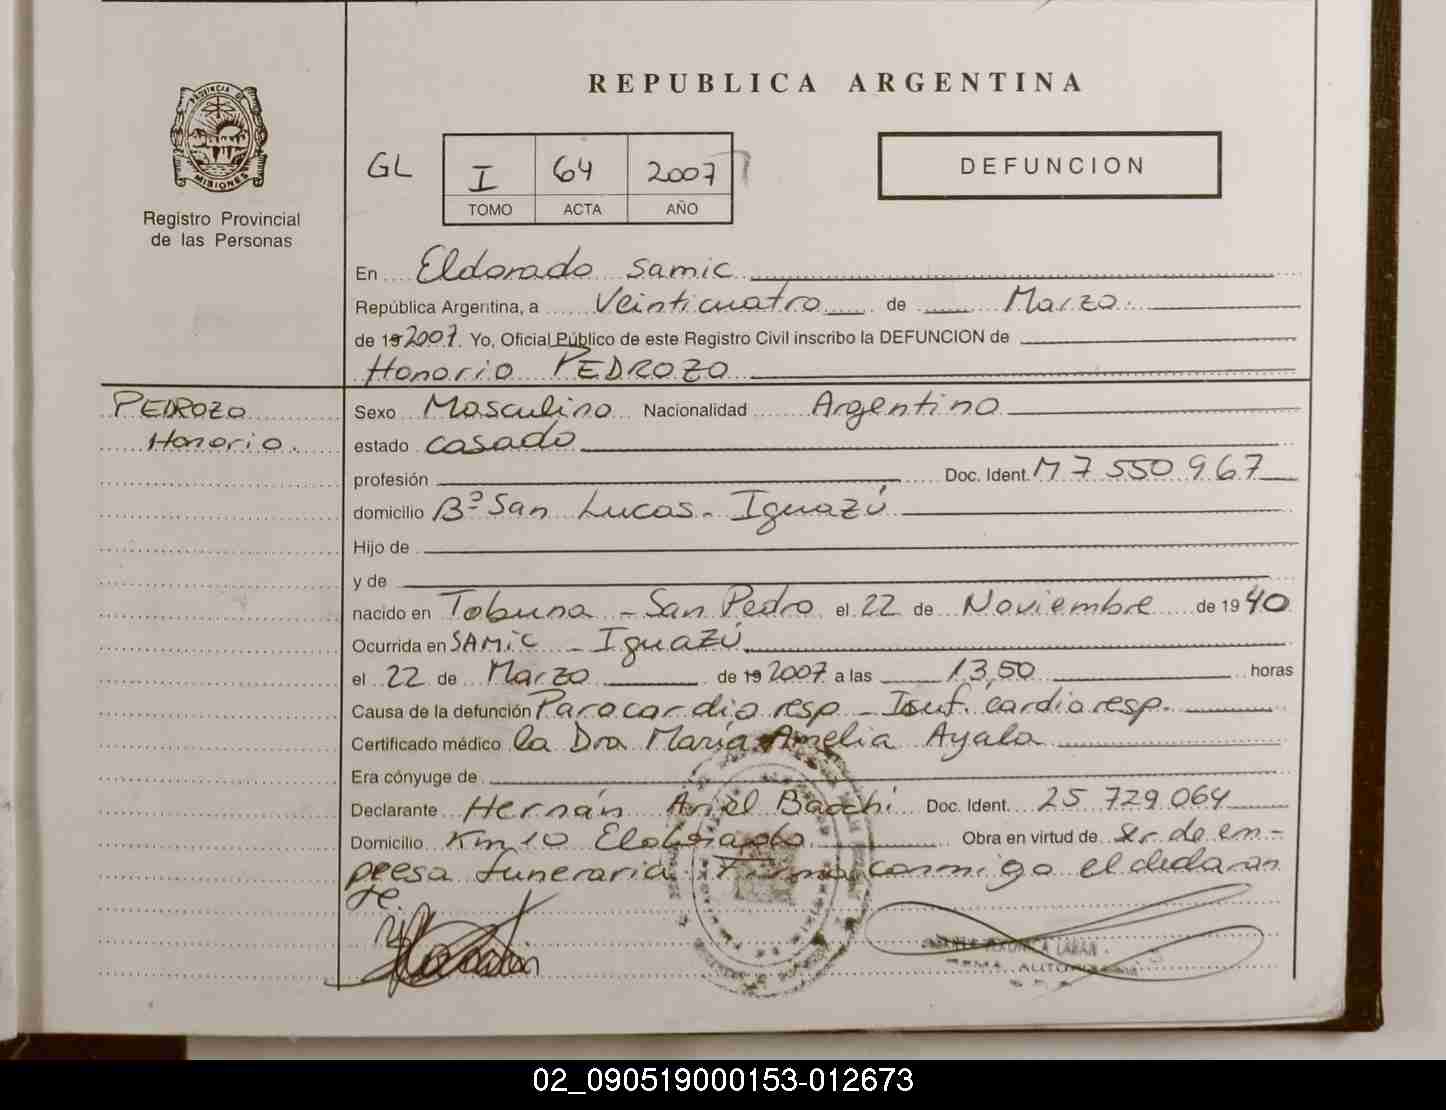 REPUBLICA ARGENTINA
PROVINCIA DE
MISIONES
Registro Provincial
de las Personas
GL
I 64 2007
TOMO ACTA AÑO
DEFUNCION
En Eldorado Samic
República Argentina, a Veinticuatro de Marzo
de 192007. Yo, Oficial Público de este Registro Civil inscribo la DEFUNCION de
Honorio PEDROZO
PEDROZO
Honorio.
Sexo Masculino Nacionalidad Argentino
estado casado
profesión Doc. Ident. M 7 550 967
domicilio Bº San Lucas - Iguazú
Hijo de
y de
nacido en Tobuna - San Pedro el 22 de Noviembre de 1940
Ocurrida en SAMIC - Iguazú
el 22 de Marzo de 192007 a las 13,50 horas
Causa de la defunción Parocardio resp - Isuf. cardioresp.
Certificado médico la Dra María Amelia Ayala
Era cónyuge de
Declarante Hernán Ariel Bacchi Doc. Ident. 25 729 064
Domicilio Km 10 Eldorado Obra en virtud de ser de em-
presa funeraria. Firma conmigo el declaran
te.
02_090519000153-012673